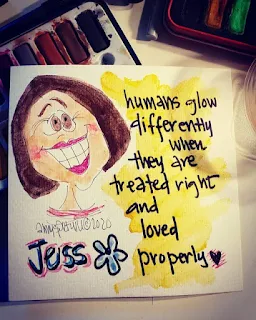 humans glow
differently
when
they are
treated right
and
loved
properly
©2020
Jess